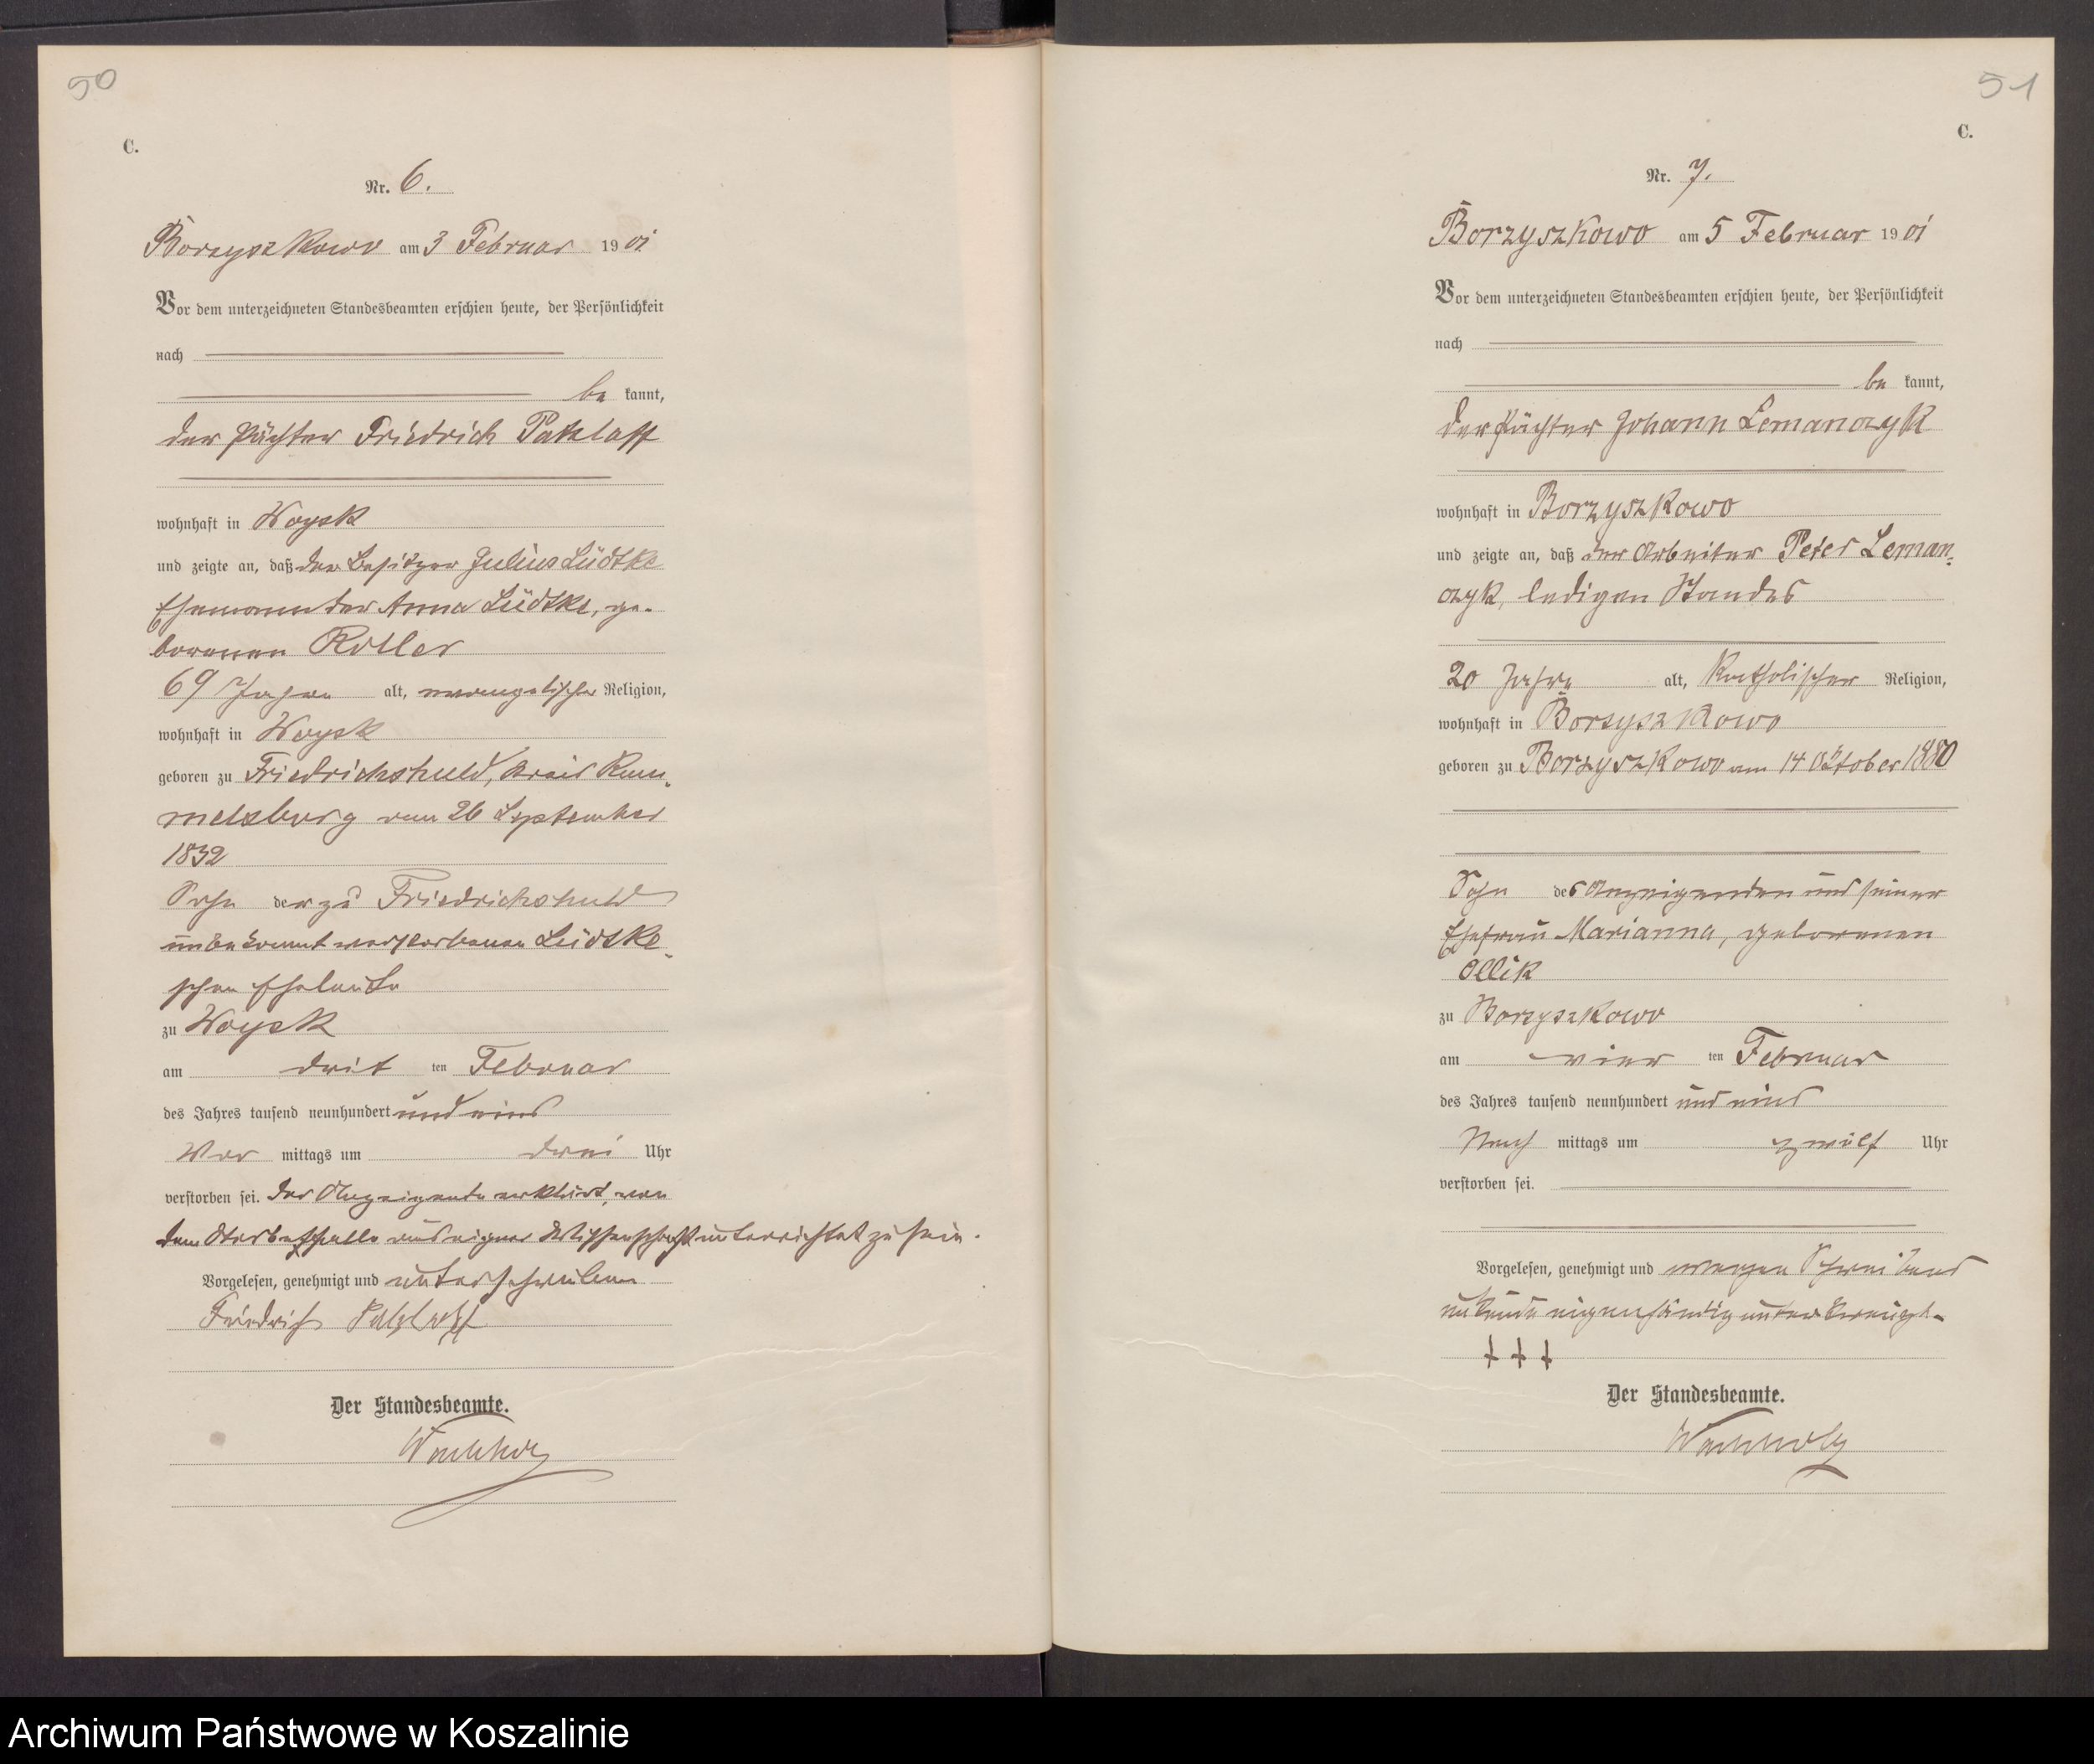 50
C.
Nr. 6.
Borzyszkowo am 3 Februar 1901
Vor dem unterzeichneten Standesbeamten erschien heute, der Persönlichkeit
nach
be kannt,
der Pächter Friedrich Patzlaff
wohnhaft in Woysk
und zeigte an, daß der Besitzer Julius Lüdtke
Ehemann der Anna Lüdtke, ge-
borenen
69 Jahre alt, evangelischer Religion,
wohnhaft in Woysk
geboren zu Friedrichshuld, Kreis Rum-
melsburg am 26 September
1832
Sohn der zu Friedrichshuld
unbekannt verstorbenen Lüdtke-
schen Eheleute
zu Woysk
am drit ten Februar
des Jahres tausend neunhundert und eins
Vor mittags um drei Uhr
verstorben sei. Der Anzeigende erklärt, von
dem Sterbefalle aus eigner Wissenschaft unterrichtet zu sein.
Vorgelesen, genehmigt und unterschrieben
Friedrich Patzlaff
Der Standesbeamte.
Wachholz
51
C.
Nr. 7.
Borzyszkowo am 5 Februar 1901
Vor dem unterzeichneten Standesbeamten erschien heute, der Persönlichkeit
nach
be kannt,
der Pächter Johann Lemanczyk
wohnhaft in Borzyszkowo
und zeigte an, daß der Arbeiter Peter Leman-
czyk, ledigen Standes
20 Jahre alt, katholischer Religion,
wohnhaft in Borzyszkowo
geboren zu Borzyszkowo am 14 Oktober 1880
Sohn des Anzeigenden und seiner
Ehefrau Marianna, geborenen
Ollik
zu Borzyszkowo
am vier ten Februar
des Jahres tausend neunhundert und eins
Nach mittags um zwölf Uhr
verstorben sei.
Vorgelesen, genehmigt und wegen Schreibens
unkunde eigenhändig unterkreuzt.
+ + +
Der Standesbeamte.
Wachholz
Archiwum Państwowe w Koszalinie